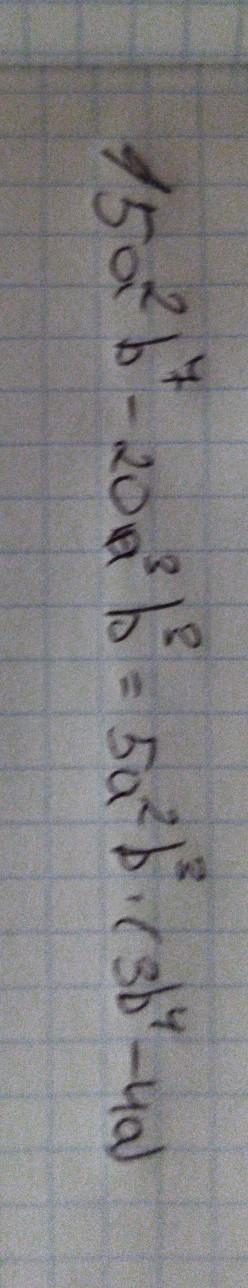 15a²b⁷ - 20a³b³ = 5a²b³ · (3b⁴ - 4a)